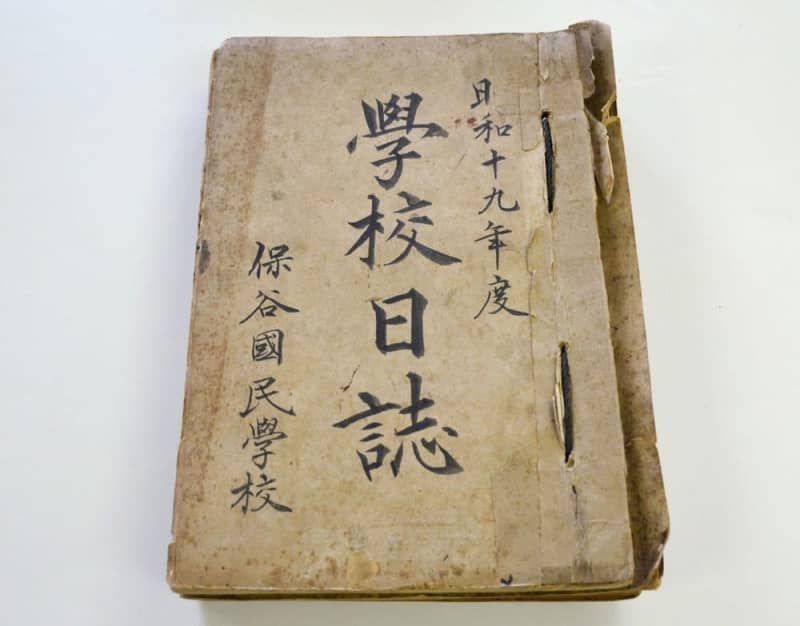 日和十九年度
學校日誌
保谷國民學校